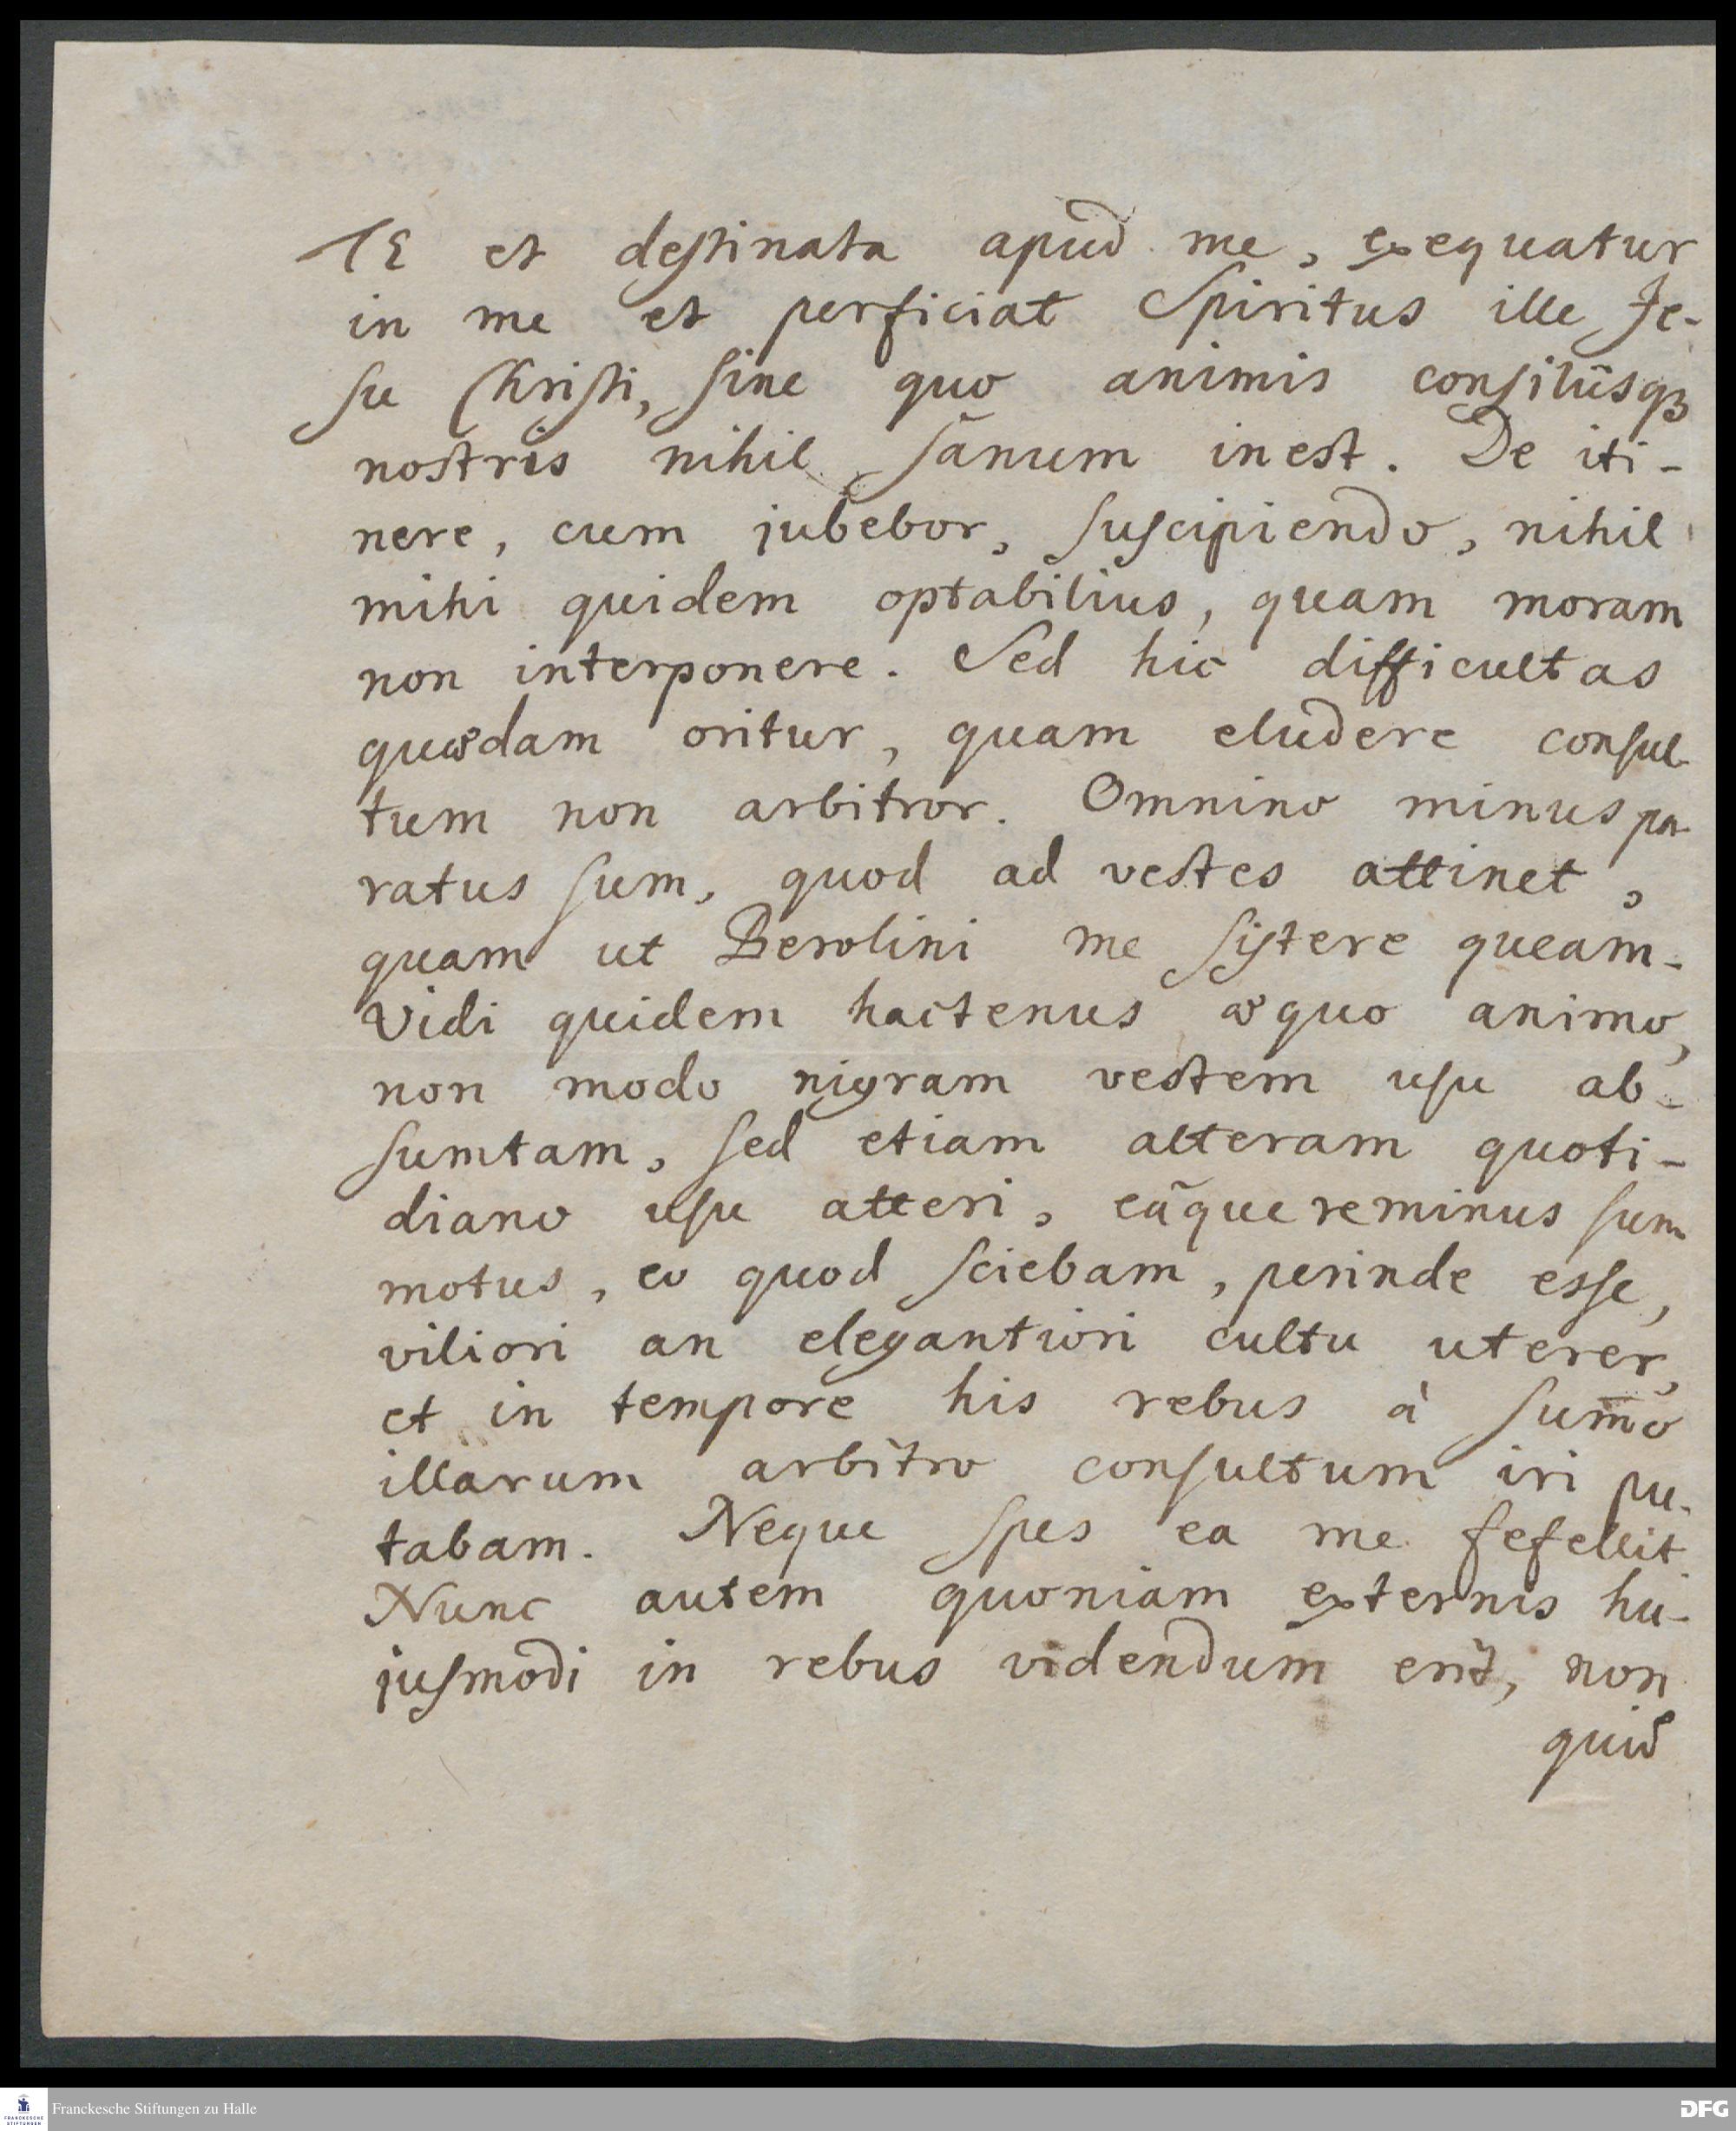 TE et destinata apud me, exequatur
in me et perficiat Spiritus ille Je-
su Christi, sine quo animis consiliisqꝫ
nostris nihil sanum inest. De iti-
nere, cum jubebor, suscipiendo, nihil
mihi quidem optabilius, quam moram
non interponere. Sed hic difficultas
quædam oritur, quam eludere consul-
tum non arbitror. Omnino minus pa-
ratus sum, quod ad vestes attinet,
quam ut Berolini me sistere queam.
Vidi quidem hactenus æquo animo,
non modo nigram vestem usu ab-
sumtam, sed etiam alteram quoti-
diano usu atteri, eâque re minus sum
motus, eo quod sciebam, perinde esse,
viliori an elegantiori cultu uterer,
et in tempore his rebus à sum̄o
illarum arbitro consultum iri pu-
tabam. Neque spes ea me fefellit.
Nunc autem quoniam externis hu-
jusmodi in rebus videndum erit, non
quid
Franckesche Stiftungen zu Halle
FRANCKESCHE STIFTUNGEN
DFG